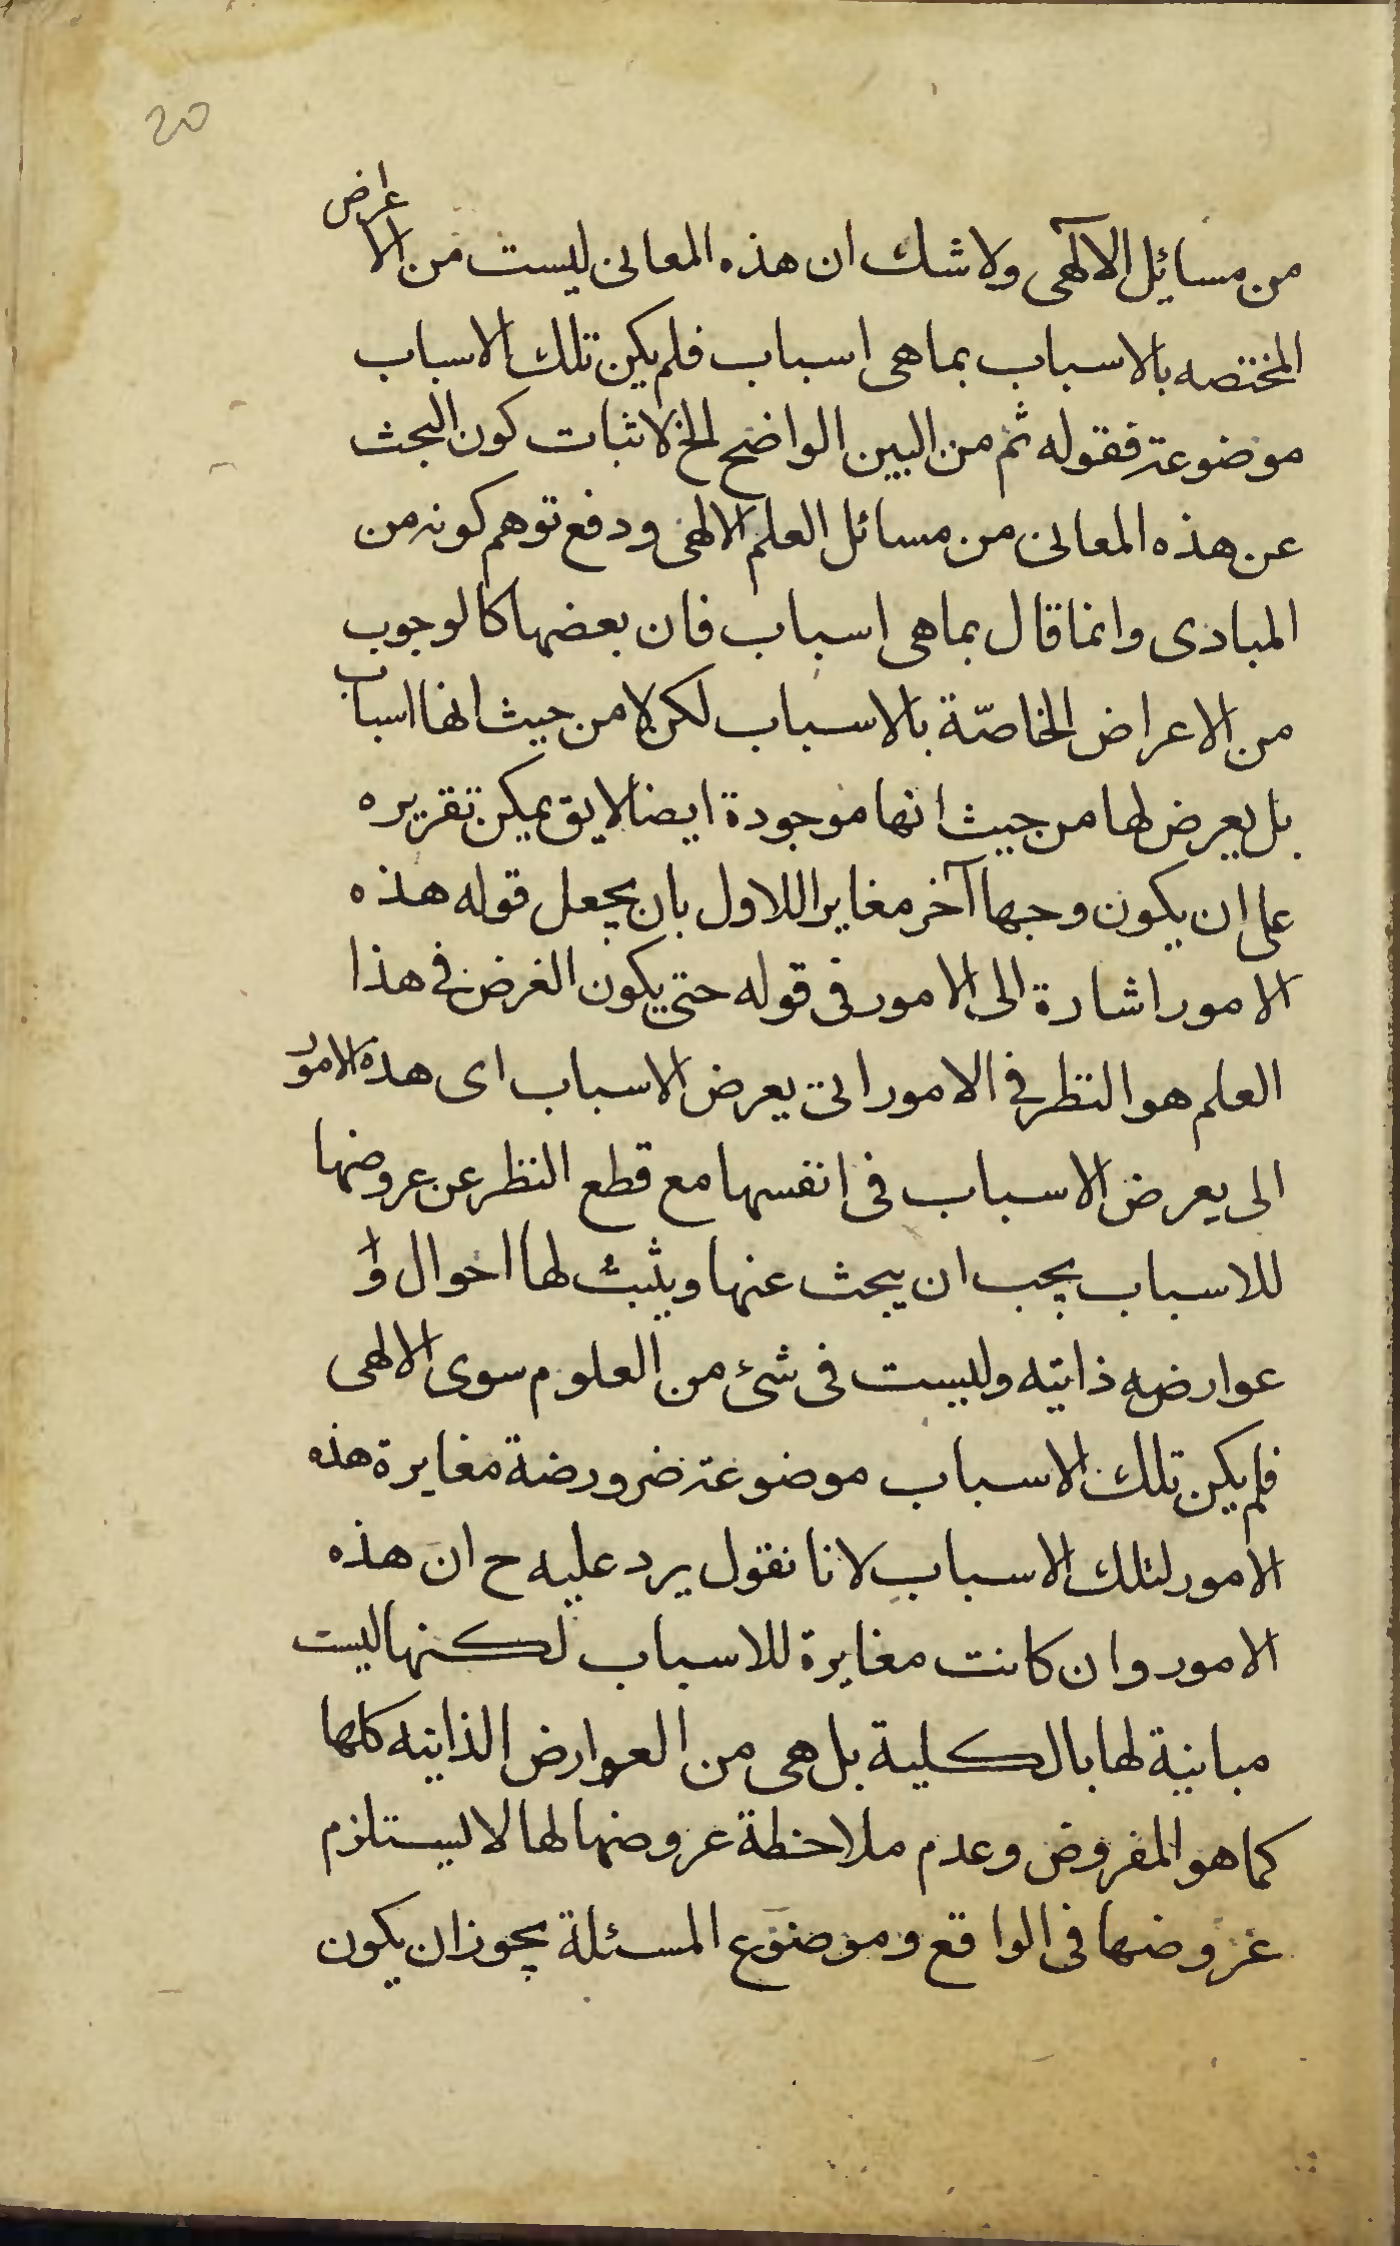 20
من مسائل الالٓهى ولا شك ان هذه المعانى ليست من الاعراض
المختصه بالاسباب بما هى اسباب فلم يكن تلك الاسباب
موضوعة فقوله ثم من البين الواضح الخ لاثبات كون البحث
عن هذه المعانى من مسائل العلم الالهى ودفع توهم كونه من
المبادى وانما قال بما هى اسباب فان بعضها كالوجوب
من الاعراض الخاصّة بالاسباب لكن لا من حيث انها اسباب
بل يعرض لها من حيث انها موجودة ايضا لا يق يمكن تقريره
على ان يكون وجها آخر مغايرا للاول بان يجعل قوله هذه
الامور اشارة الى الامور فى قوله حتى يكون الغرض فى هذا
العلم هو النظر فى الامور التى يعرض الاسباب اى هذه الامور
الى يعرض الاسباب فى انفسها مع قطع النظر عن عروضها
للاسباب يجب ان يبحث عنها ويثبت لها احوال وا
عوارضه ذاتيه وليست فى شئ من العلوم سوى الالهى
فلم يكن تلك الاسباب موضوعة ضرورضة مغايرة هذه
الامور لتلك الاسباب لانا نقول يرد عليه ح ان هذه
الامور وان كانت مغايرة للاسباب لكنها ليست
مباينة لها بالكلية بل هى من العوارض الذاتيه كلها
كما هو المفروض وعدم ملاحظة عروضها لها لا يستلزم
عروضها فى الواقع وموضوع المسئلة يجوز ان يكون